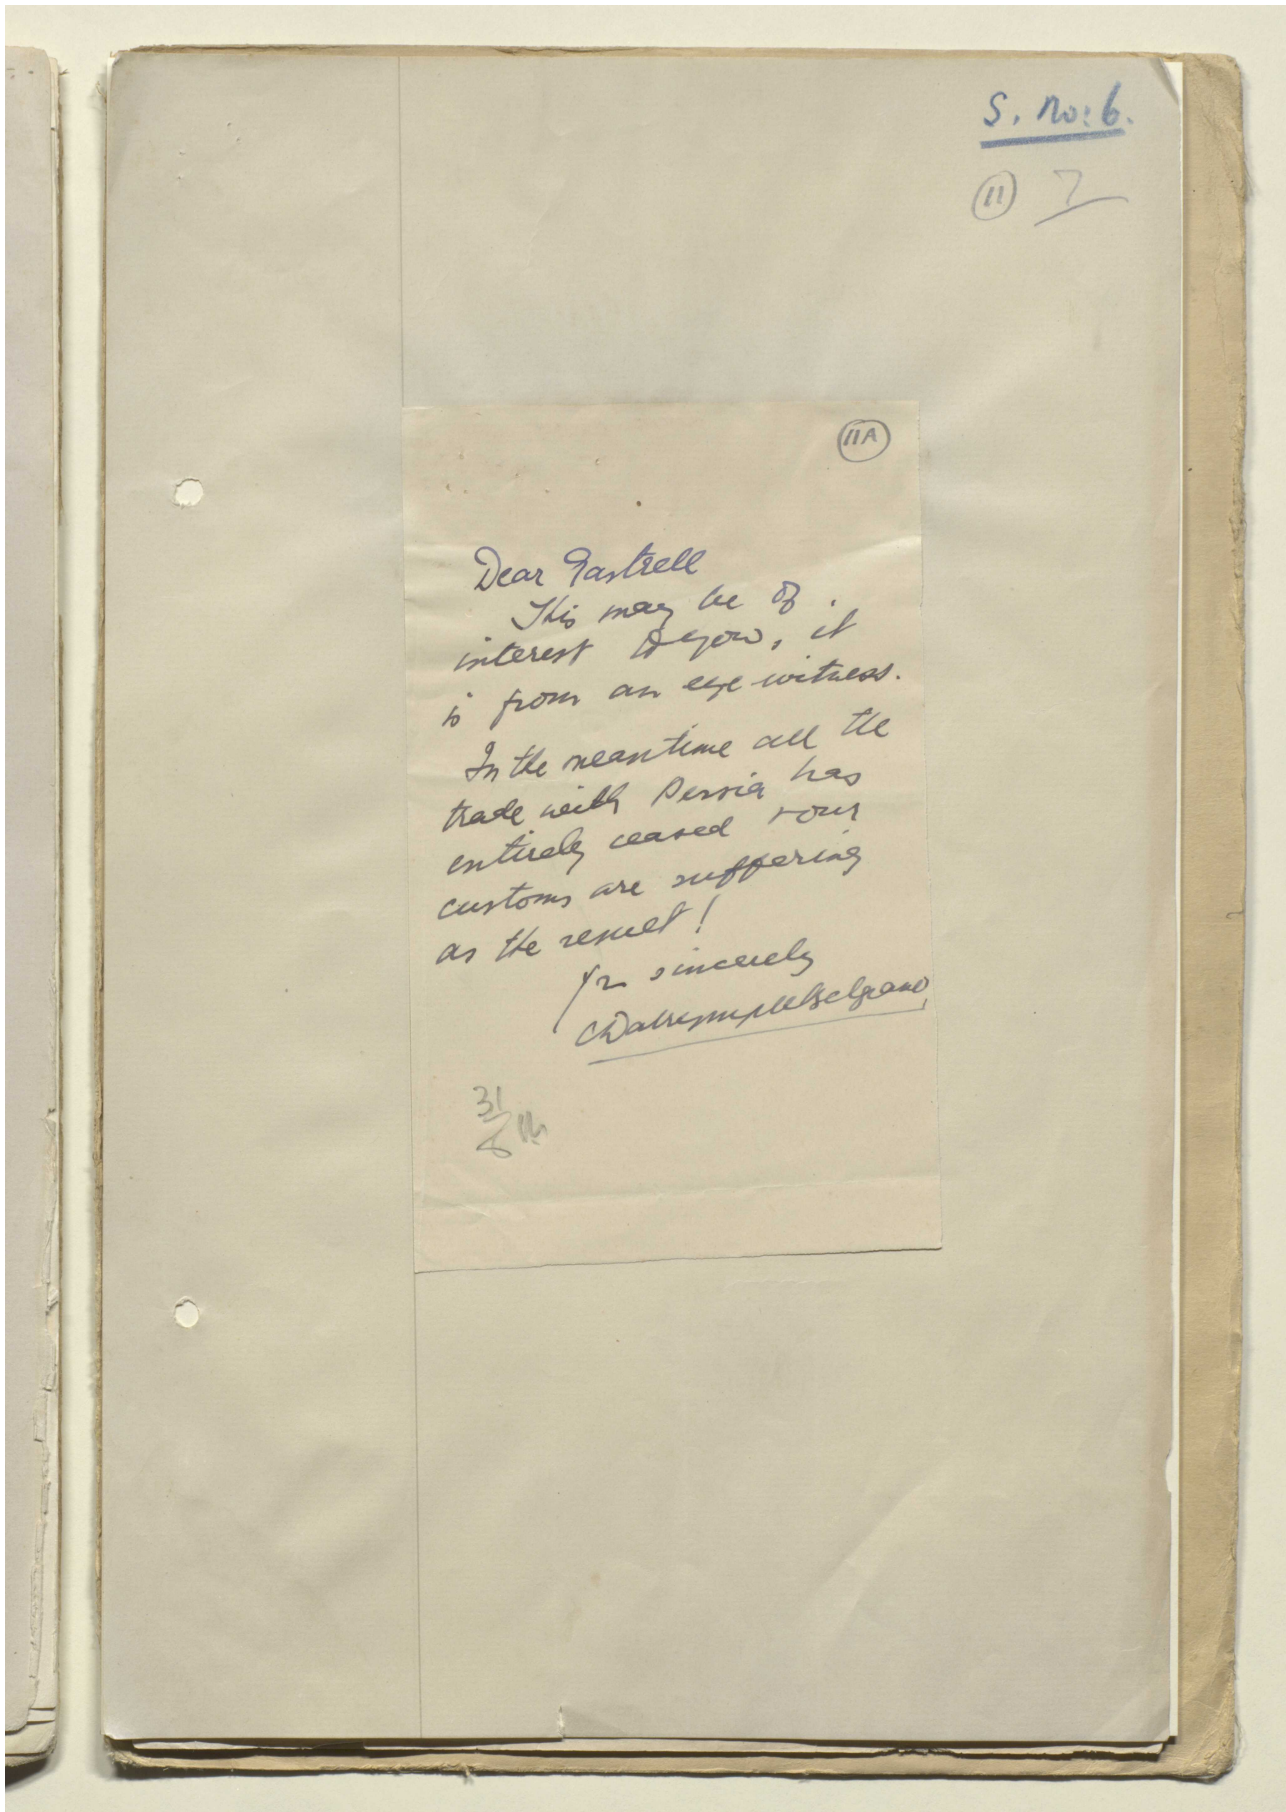 S. No: 6.
11 7
11A
Dear Gastrell
This may be of
interest to you, it
is from an eye witness.
In the meantime all the
trade with Persia has
entirely ceased & our
customs are suffering
as the result!
Yrs sincerely
CDalrympleBelgrave
31
8